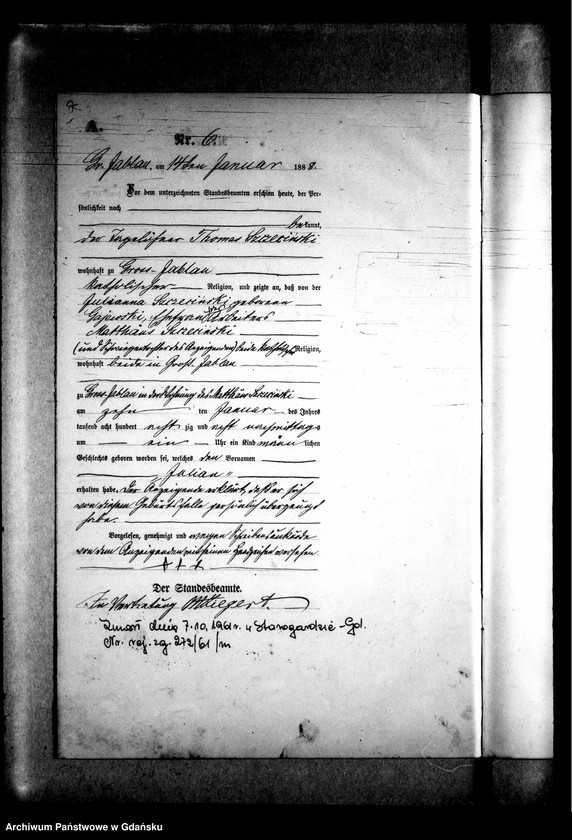 A.
Nr. 6.
Gr. Jablau, am 14ten Januar 1888.
Vor dem unterzeichneten Standesbeamten erschien heute, der Per-
sönlichkeit nach
bekannt,
der Tagelöhner Thomas Szczecinski
wohnhaft zu Gross-Jablau
katholischer Religion, und zeigte an, daß von der
Julianna Szczecinski, geborenen
Gajewski, Ehefrau des Arbeiters
Matthäus Szczecinski
(und Schwiegertochter des Anzeigenden) beide katholischer Religion,
wohnhaft beide in Groß-Jablau
zu Gross-Jablau in der Wohnung des Matthäus Szczecinski
am zehn ten Januar des Jahres
tausend acht hundert acht zig und acht vormittags
um ein Uhr ein Kind männlichen
Geschlechts geboren worden sei, welches den Vornamen
Julian
erhalten habe. Der Anzeigende erklärt, daß er sich
von diesem Geburtsfalle persönlich überzeugt
habe.
Vorgelesen, genehmigt und wegen Schreibensunkunde
von dem Anzeigenden mit seinem Handzeichen versehen
+ + +
Der Standesbeamte.
In Vertretung
Zmarł dnia 7.10.1961r. w Starogardzie-Gd.
Nr. rej. zg. 272/61 /m
Archiwum Państwowe w Gdańsku